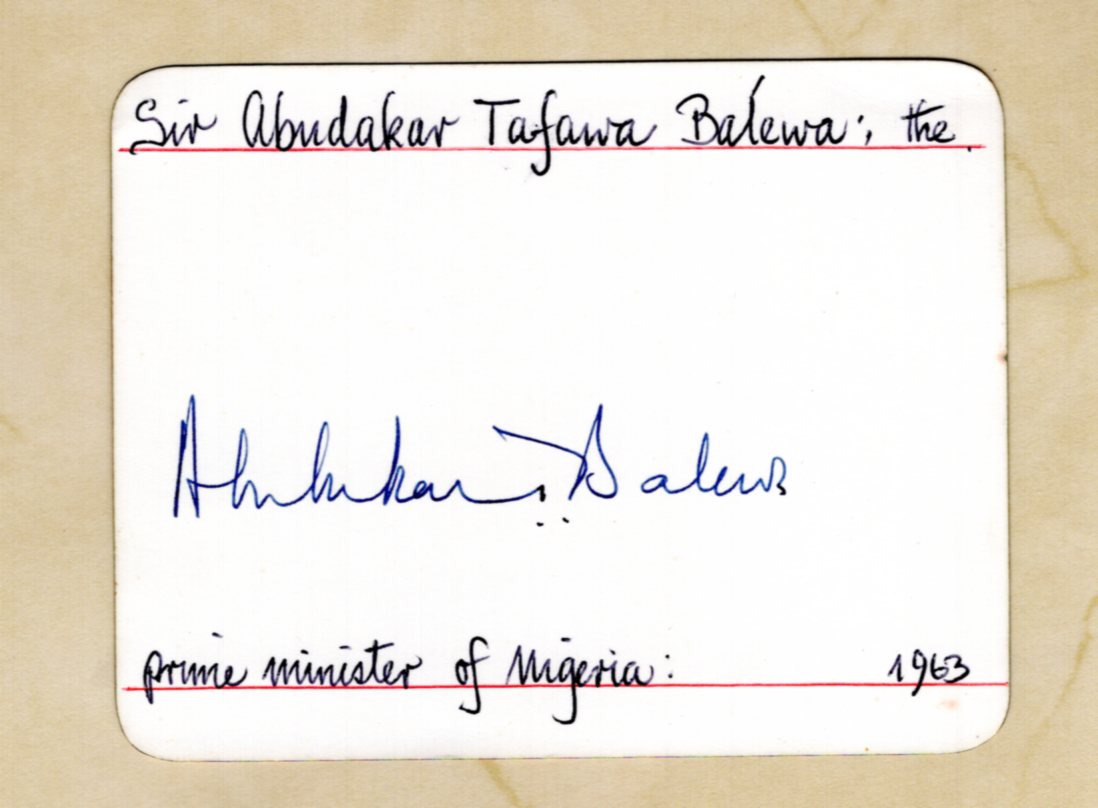 Sir Abudakar Tafawa Balewa: the
Abubakar Balewa
prime minister of Nigeria: 1963